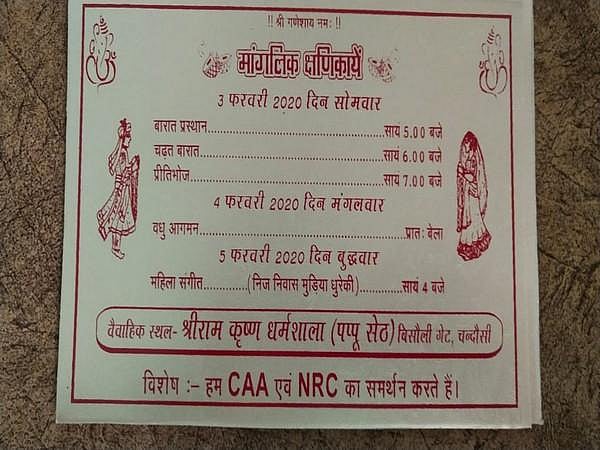 !! श्री गणेशाय नमः !!
मांगलिक क्षणिकायें
3 फरवरी 2020 दिन सोमवार
बारात प्रस्थान........................................सायं 5.00 बजे
चढ़त बारात........................................सायं 6.00 बजे
प्रीतिभोज........................................सायं 7.00 बजे
4 फरवरी 2020 दिन मंगलवार
वधु आगमन........................................प्रातः बेला
5 फरवरी 2020 दिन बुद्धवार
महिला संगीत............(निज निवास मुड़िया धुरेकी)............सायं 4 बजे
वैवाहिक स्थल- श्रीराम कृष्ण धर्मशाला (पप्पू सेठ) बिसौली गेट, चन्दौसी
विशेष :– हम CAA एवं NRC का समर्थन करते हैं।